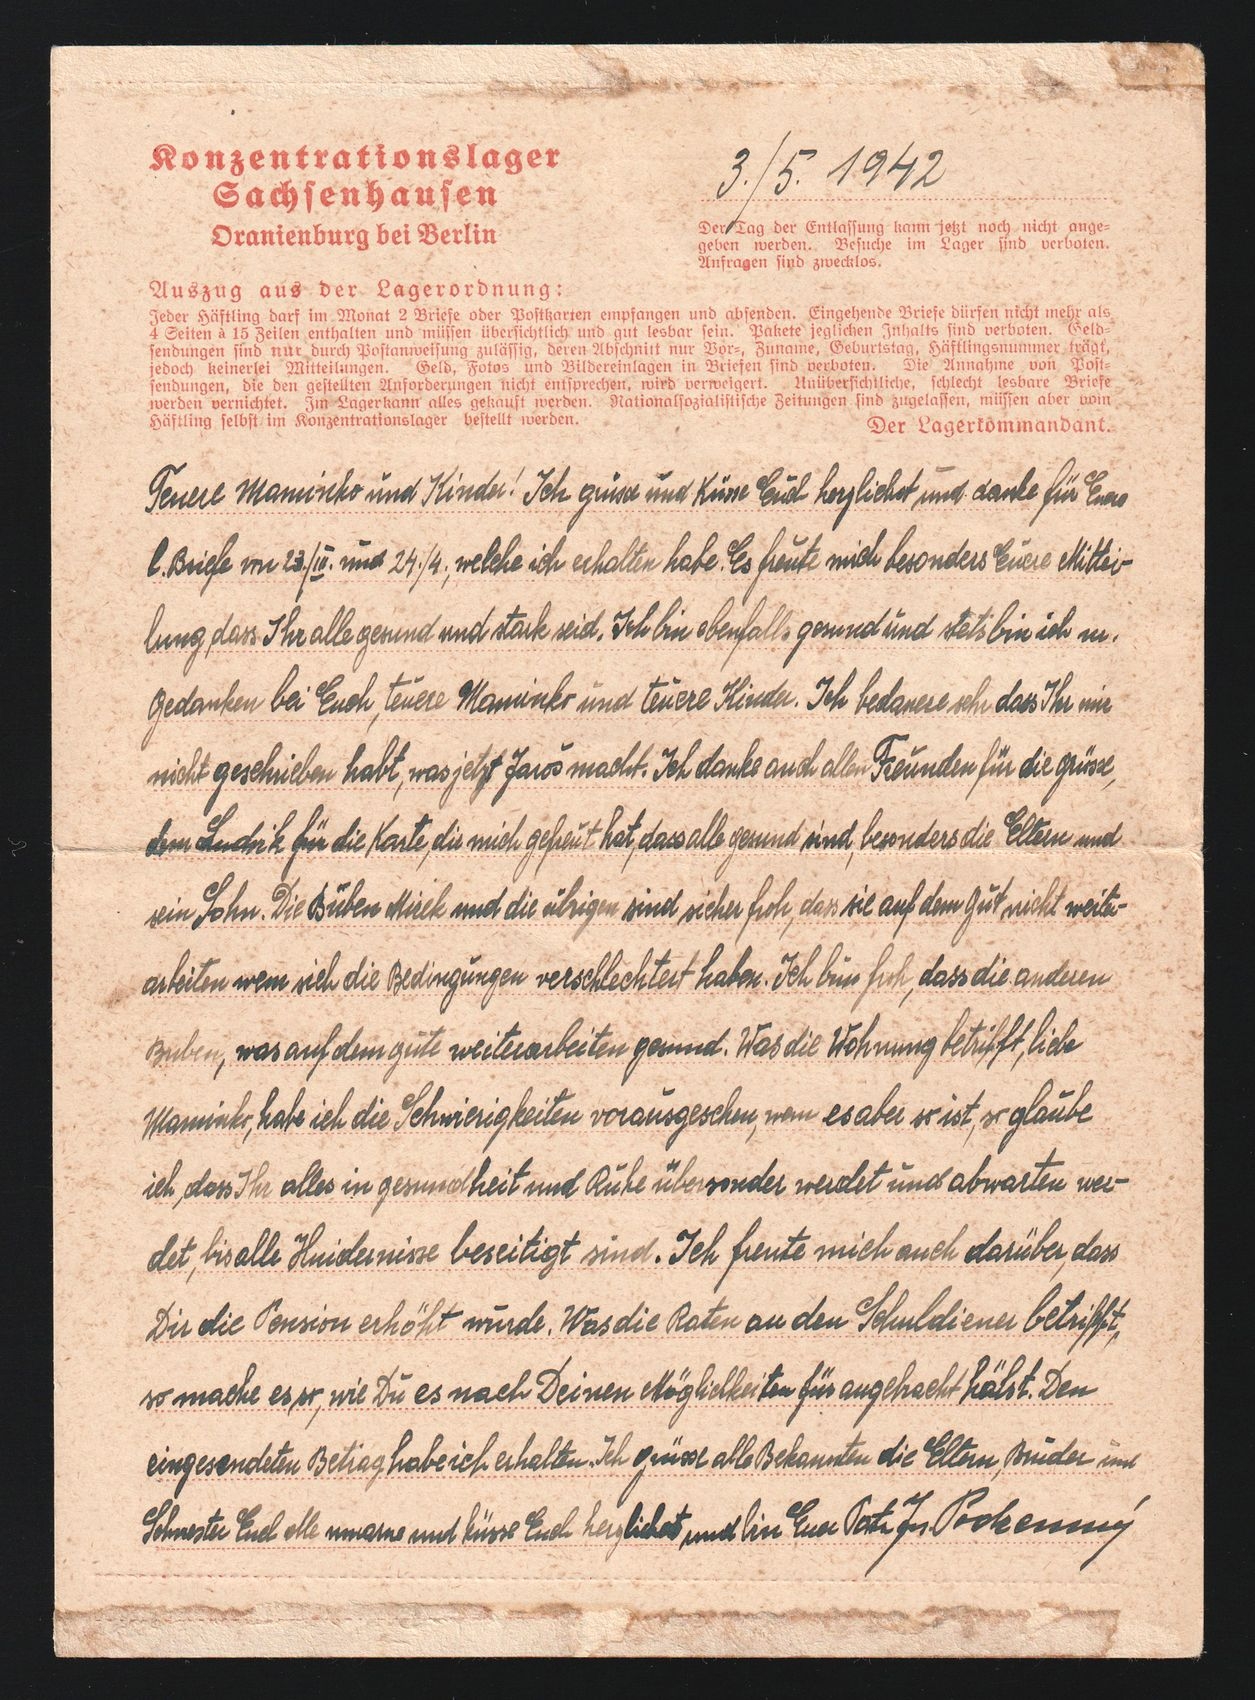 Konzentrationslager
Sachsenhausen
Oranienburg bei Berlin
3./5. 1942
Der Tag der Entlassung kann jetzt noch nicht ange-
geben werden. Besuche im Lager sind verboten.
Anfragen sind zwecklos.
Auszug aus der Lagerordnung:
Jeder Häftling darf im Monat 2 Briefe oder Postkarten empfangen und absenden. Eingehende Briefe dürfen nicht mehr als
4 Seiten à 15 Zeilen enthalten und müssen übersichtlich und gut lesbar sein. Pakete jeglichen Inhalts sind verboten. Geld-
sendungen sind nur durch Postanweisung zulässig, deren Abschnitt nur Vor-, Zuname, Geburtstag, Häftlingsnummer trägt,
jedoch keinerlei Mitteilungen. Geld, Fotos und Bildereinlagen in Briefen sind verboten. Die Annahme von Post-
sendungen, die den gestellten Anforderungen nicht entsprechen, wird verweigert. Unübersichtliche, schlecht lesbare Briefe
werden vernichtet. Im Lager kann alles gekauft werden. Nationalsozialistische Zeitungen sind zugelassen, müssen aber vom
Häftling selbst im Konzentrationslager bestellt werden.
Der Lagerkommandant.
Teuere Maminko und Kinder! Ich grüsse und Küsse Euch herzlichst und danke für Euere
l. Briefe von 23./III. und 24./4., welche ich erhalten habe. Es freute mich besonders Euere Mittei-
lung, dass Ihr alle gesund und stark seid. Ich bin ebenfalls gesund und stets bin ich in
Gedanken bei Euch, teuere Maminko und teuere Kinder. Ich bedauere sehr dass Ihr mir
nicht geschrieben habt, was jetzt Jaroš macht. Ich danke auch allen Freunden für die grüsse,
dem Ludvik für die Karte, die mich gefreut hat, dass alle gesund sind, besonders die Eltern und
sein Sohn. Die Buben Mirek und die übrigen sind sicher froh, dass sie auf dem Gut nicht weiter-
arbeiten wenn sich die Bedingungen verschlechtert haben. Ich bin froh, dass die anderen
Buben, was auf dem gute weiterarbeiten gesund. Was die Wohnung betrifft, liebe
Maminko, habe ich die Schwierigkeiten vorausgesehen, wenn es aber so ist, so glaube
ich, dass Ihr alles in gesundheit und Ruhe werdet und abwarten wer-
det, bis alle Hindernisse beseitigt sind. Ich freute mich auch darüber, dass
Dir die Pension erhöht wurde. Was die Raten an den Schuldiener betrifft,
so mache es so, wie Du es nach Deinen Möglichkeiten für angebracht hälst. Den
eingesendeten Betrag habe ich erhalten. Ich grüsse alle Bekannten die Eltern, Bruder und
Schwester Euch alle umarme und küsse Euch herzlichst und bin Euer